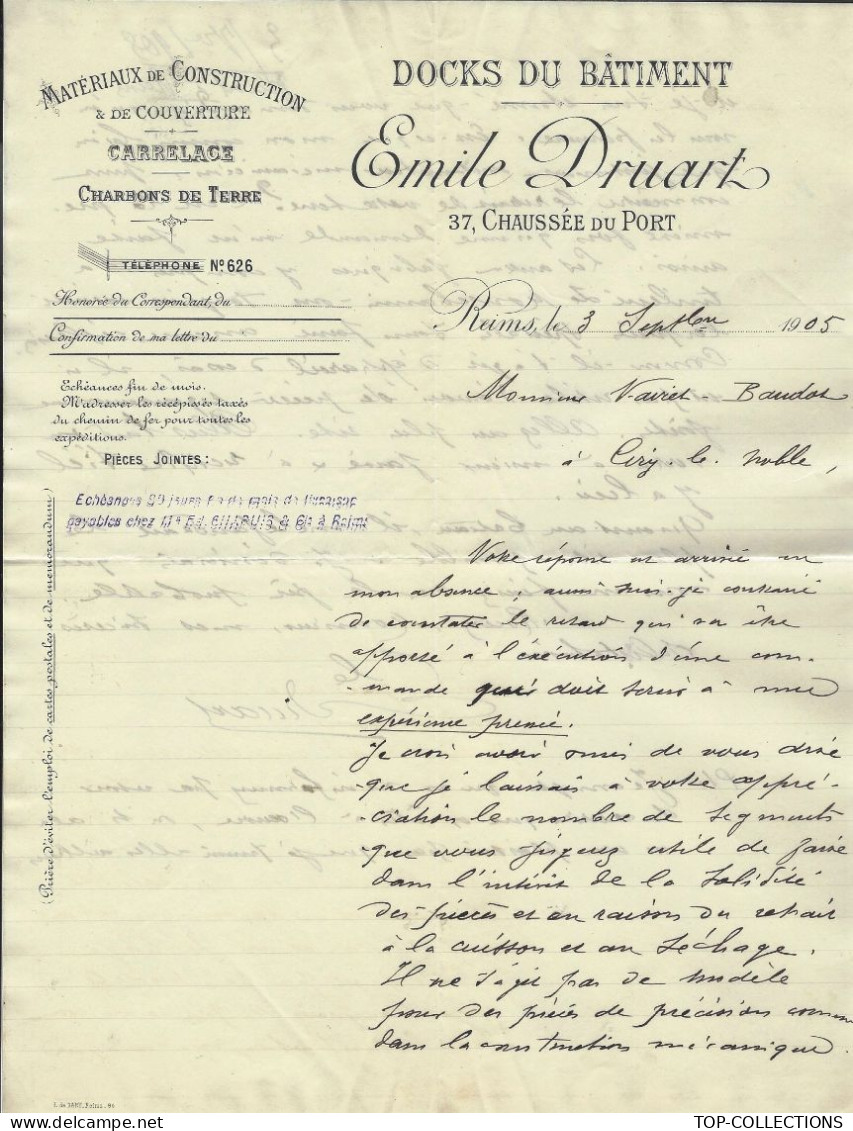 MATÉRIAUX DE CONSTRUCTION
& DE COUVERTURE
CARRELAGE
CHARBONS DE TERRE
TÉLÉPHONE Nº 626
DOCKS DU BÂTIMENT
Emile Druart
37, CHAUSSÉE DU PORT
Honorée du Correspondant, du
Confirmation de ma lettre du
Reims, le 3 Septbre 1905
Echéances fin de mois.
M'adresser les récépissés taxés
du chemin de fer pour toutes les
expéditions.
PIÈCES JOINTES:
Echéance 90 jours
payables chez & Cie à Reims
(Prière d'éviter l'emploi de cartes postales et de memorandum)
Monsieur Vairet-Baudot
à Ciry-le-Noble,
Votre réponse est arrivée en
mon absence, aussi suis-je contrarié
de constater le retard qui va être
apporté à l'exécution d'une com-
-mande qui doit servir à une
expérience presée.
Je crois avoir omis de vous dire
que je laissais à votre appré-
-ciation le nombre de segments
que vous jugerez utile de faire
dans l'intérêt de la solidité
des pièces et en raison du retrait
à la cuisson et au séchage.
Il ne s'agit pas de modèle
pour des pièces de précision comme
dans la construction mécanique.
TOP-COLLECTIONS